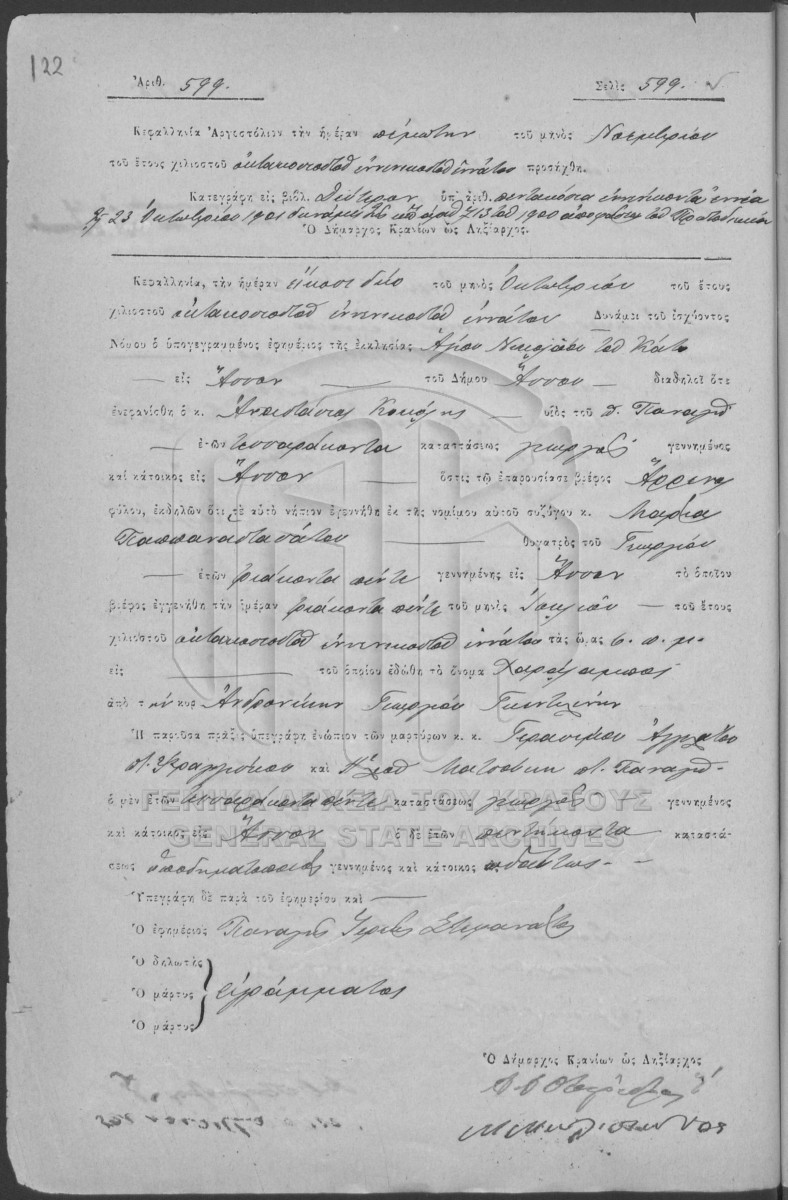 122
Ἀριθ. 599. Σελὶς 599.
Κεφαλληνία Ἀργοστόλιον τὴν ἡμέραν πέμπτην τοῦ μηνὸς Νοεμβρίου
τοῦ ἔτους χιλιοστοῦ ὀκτακοσιοστοῦ ἐννενηκοστοῦ ἐννάτου προσήχθη.
Κατεγράφη εἰς βιβλ. Δεύτερον ὑπ' ἀριθ. πεντακόσια ἐννενήκοντα ἐννέα
23 Ὀκτωβρίου 1901 δυνάμει τῆς ὑπ' ἀριθ 713 τοῦ 1900 ἀποφάσεως τοῦ Πρωτοδικείου
Ὁ Δήμαρχος Κρανίων ὡς Ληξίαρχος.
Κεφαλληνία, τὴν ἡμέραν εἴκοσι δύο τοῦ μηνὸς Ὀκτωβρίου τοῦ ἔτους
χιλιοστοῦ ὀκτακοσιοστοῦ ἐννενηκοστοῦ ἐννάτου Δυνάμει τοῦ ἰσχύοντος
Νόμου ὁ ὑπογεγραμμένος ἐφημέριος τῆς ἐκκλησίας Ἁγίου Νικολάου τοῦ Κάτω
— εἰς Ἄσσον — τοῦ Δήμου Ἄσσου — διαδηλοῖ ὅτι
ἐνεφανίσθη ὁ κ. Ἀναστάσιος — υἱὸς τοῦ π. Παναγῆ
— ἐτῶν τεσσαράκοντα καταστάσεως γεωργὸς γεννημένος
καὶ κάτοικος εἰς Ἄσσον — ὅστις τῷ ἐπαρουσίασε βρέφος Ἄρρενος
φύλου, ἐκδηλῶν ὅτι τὸ αὐτὸ νήπιον ἐγεννήθη ἐκ τῆς νομίμου αὐτοῦ συζύγου κ. Μαρία
Παππαναστασάτου — θυγατρὸς τοῦ Γεωργίου
— ἐτῶν τριάκοντα πέντε γεννημένης εἰς Ἄσσον τὸ ὁποῖον
βρέφος ἐγγενήθη τὴν ἡμέραν τριάκοντα πέντε τοῦ μηνὸς Ἰουλίου — τοῦ ἔτους
χιλιοστοῦ ὀκτακοσιοστοῦ ἐννενηκοστοῦ ἐννάτου τὰς ὥρας 6. π. μ.
εἰς — τοῦ ὁποίου ἐδώθη τὸ ὄνομα Χαράλαμπος
ἀπὸ τὴν κυρ Ἀνδρονίκην Γεωργίου
Ἡ παροῦσα πράξις ὑπεγράφη ἐνώπιον τῶν μαρτύρων κ. κ. Γερασίμου
π. Φραγγίσκου καὶ π. Παναγῆ
ὁ μὲν ἐτῶν τεσσαράκοντα πέντε καταστάσεως γεωργὸς γεννημένος
καὶ κάτοικος εἰς Ἄσσον ὁ δὲ ἐτῶν πεντήκοντα καταστά-
σεως ὑποδηματοποιὸς γεννημένος καὶ κάτοικος ὡσαύτως. -
Ὑπεγράφη δὲ παρὰ τοῦ ἐφημερίου καὶ —
Ὁ ἐφημέριος Παναγῆς Ἱερεὺς
Ὁ δηλωτὸς
Ὁ μάρτυς ἀγράμματος
Ὁ μάρτυς
Ὁ Δήμαρχος Κρανίων ὡς Ληξίαρχος
ΓΕΝΙΚΑ ΑΡΧΕΙΑ ΤΟΥ ΚΡΑΤΟΥΣ
GENERAL STATE ARCHIVES